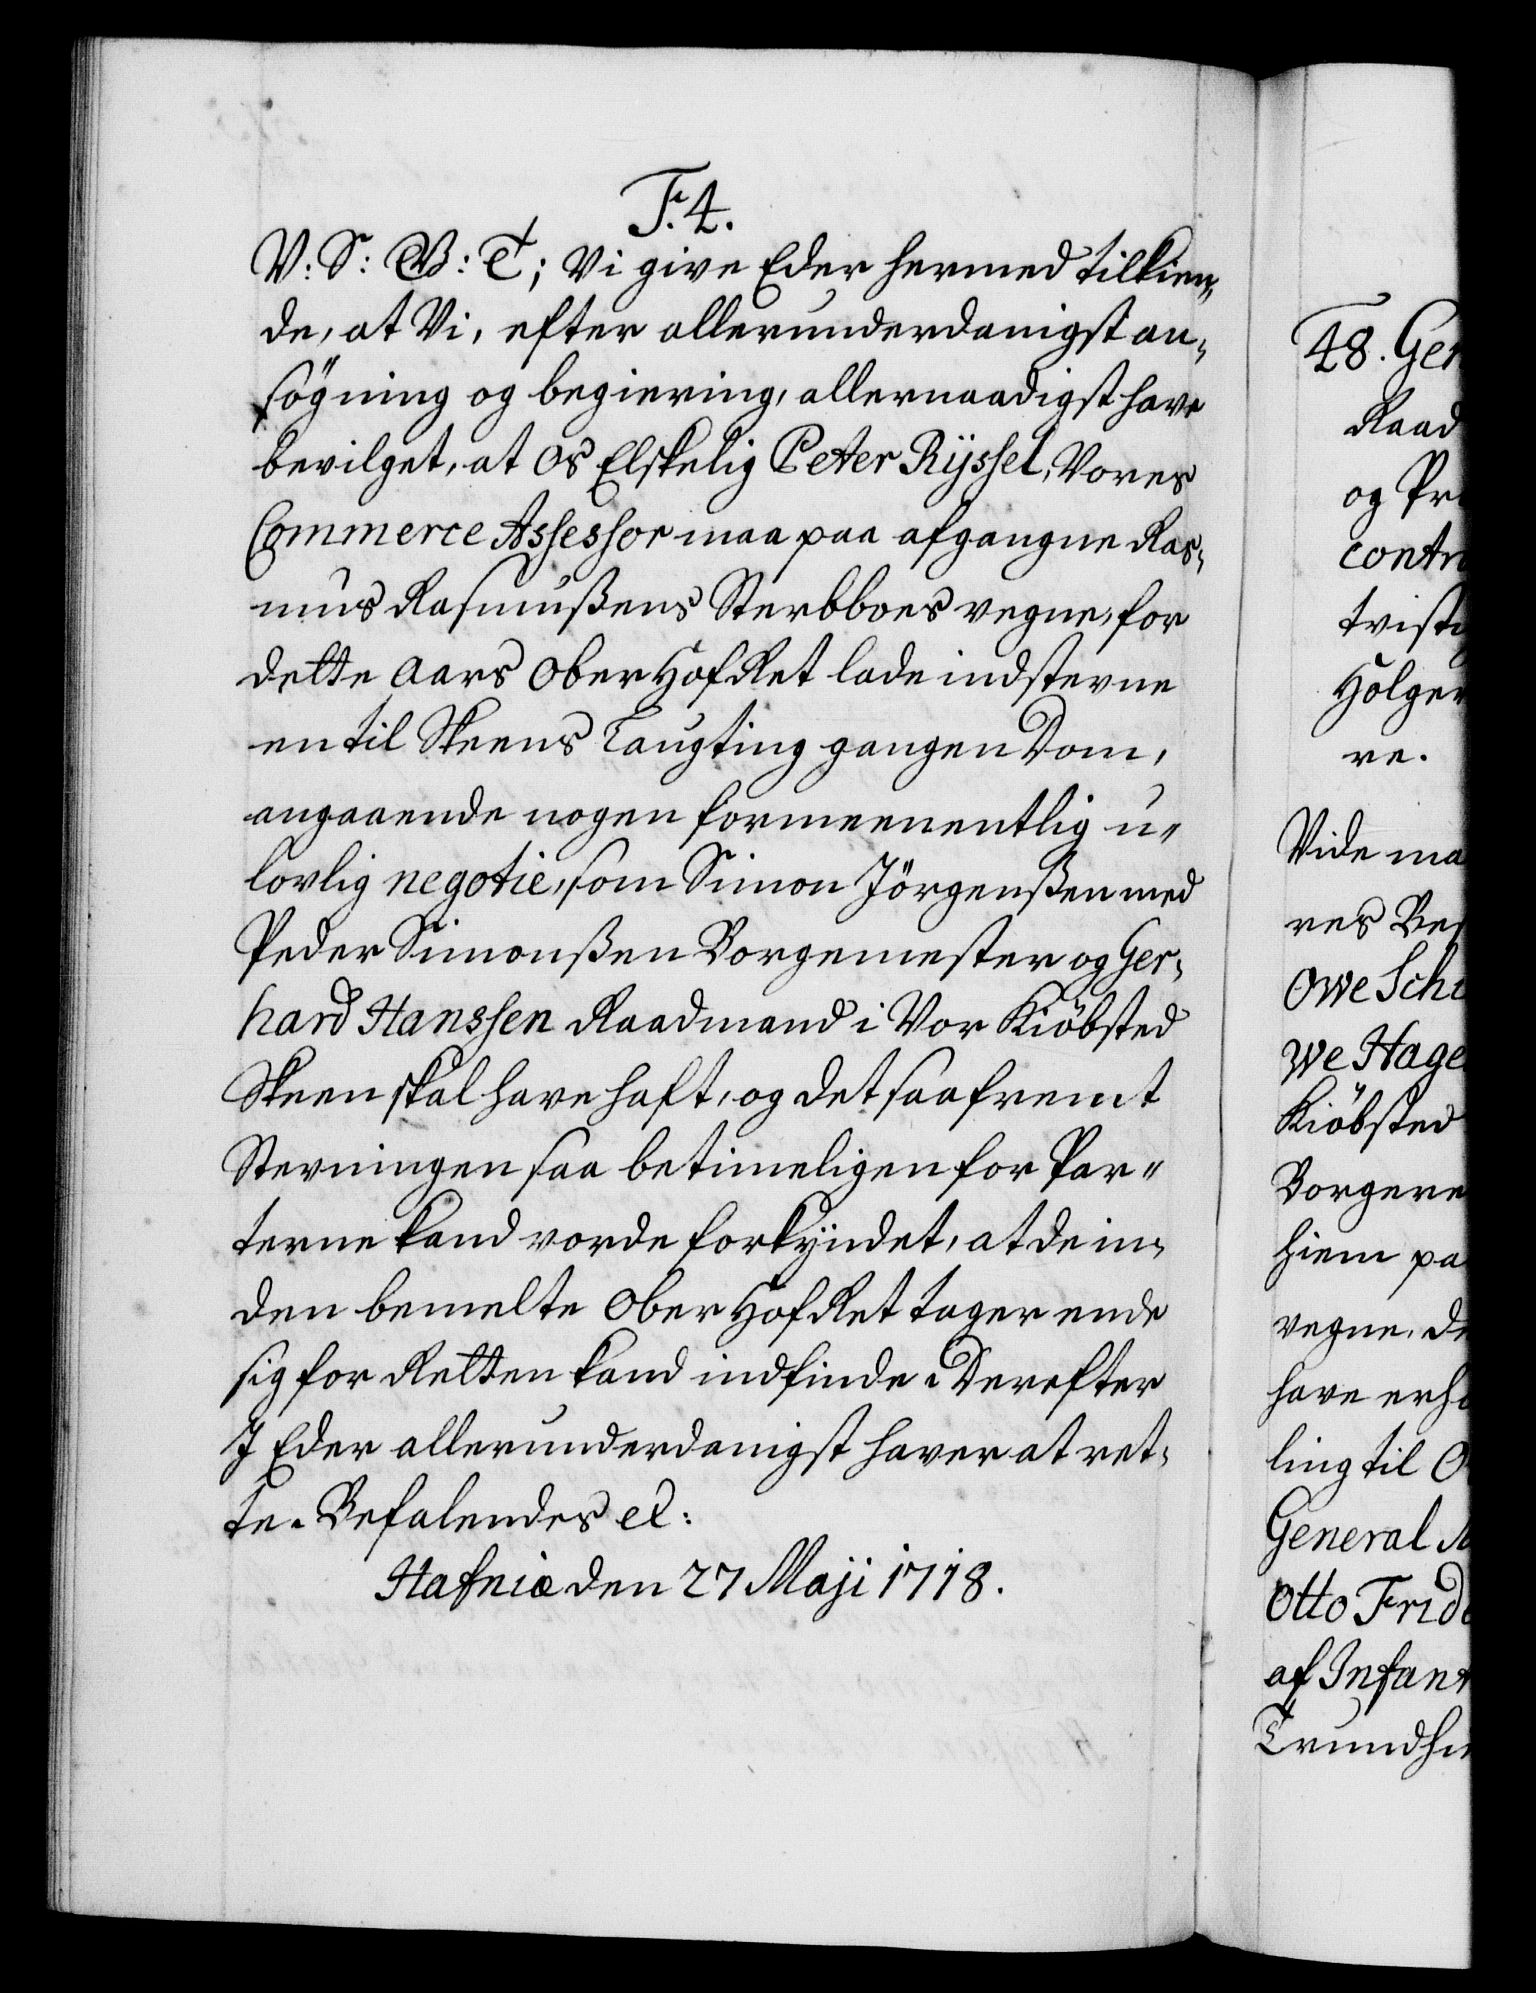 F. 4.
V: S: G B: T; Vi give Eder hermed tilkien-
de, at Vi, efter allerunderdanigst an-
søgning og begiering, allernaadigst have
bevilget, at Os Elskelig Peter Rÿssel, Vores
Commerce Assessor maa paa afgangne Ras-
mus Rasmußens Sterbboes vegne, for
dette Aars Ober Hof Ret lade indstevne
en til Skeens Laugting gangen Dom,
angaaende nogen formeenentlig u-
lovlig negotie, som Simon Jörgenßen med
Peder Simonßen Borgemester og Ger-
hard Hanssen Raadmand i Vor Kiöbsted
Skeen skal have haft, og det saafremt
Stevningen saa betimeligen for Par-
terne kand vorde forkÿndet, at de in-
den bemelte Ober Hof Ret tager ende
sig for Retten kand indfinde. Derefter
I Eder allerunderdanigst haver at ret-
te. Befalendes
Hafniæ den 27 Maji 1718.
48. Ger
Raad
og Pr
contra
tvisti
Holger
re.
Vide ma
res Be
Owe Sch
we Hage
Kiöbsted
Borgere
hiem pa
vegne, de
have erh
ling til O
General
Otto Frid
af Infant
Trundhi